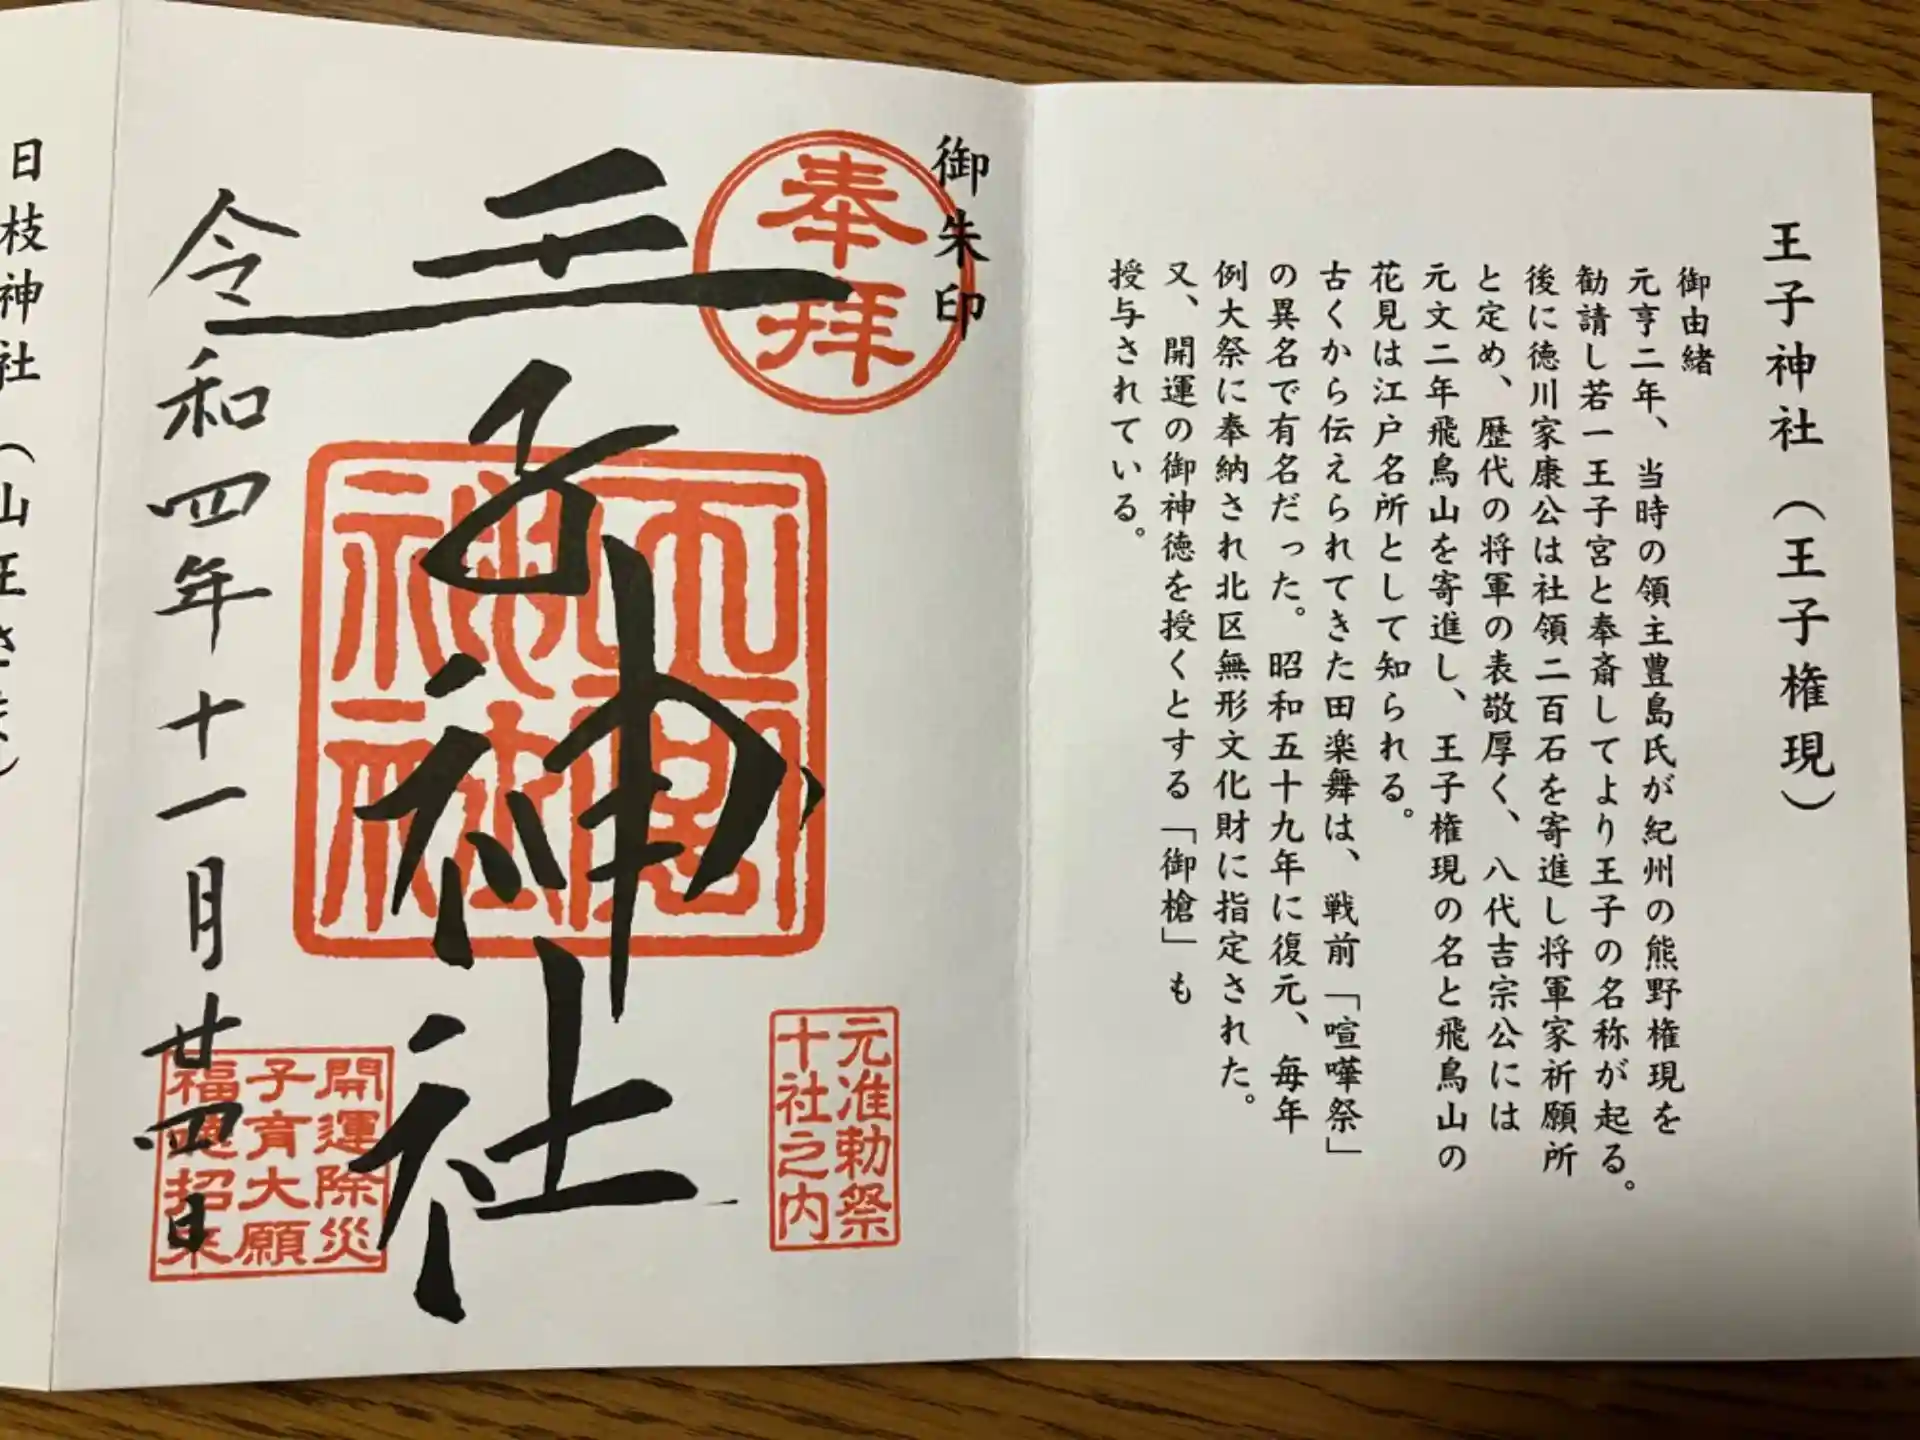 王子神社（王子権現）
御由緒
元亨二年、当時の領主豊島氏が紀州の熊野権現を
勧請し若一王子宮と奉斎してより王子の名称が起る。
後に徳川家康公は社領二百石を寄進し将軍家祈願所
と定め、歴代の将軍の表敬厚く、八代吉宗公には
元文二年飛鳥山を寄進し、王子権現の名と飛鳥山の
花見は江戸名所として知られる。
古くから伝えられてきた田楽舞は、戦前「喧嘩祭」
の異名で有名だった。昭和五十九年に復元、毎年
例大祭に奉納され北区無形文化財に指定された。
又、開運の御神徳を授くとする「御槍」も
授与されている。
御朱印
奉拝
元准勅祭
十社之内
王子神社
王子神社
開運除災
子育大願
福徳招来
令和四年十一月廿四日
日枝神社（山王さま）